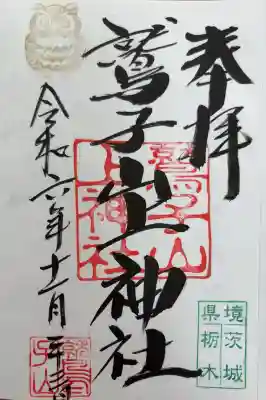 奉拝
鷲子山上神社
令和六年十一月
鷲子山
上神社
県境
茨城
栃木